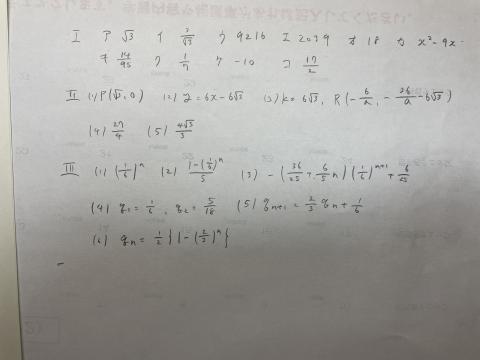 I ア √3 イ 3/√3 ウ 9216 エ 2039 オ 18 カ x²-9x-
キ 14/95 ク 1/7 ケ -10 コ 17/2
II (1) P(√3, 0) (2) y=6x-6√3 (3) k=6√3, R(-6/a, -36/a-6√3)
(4) 27/4 (5) 4√3/3
III (1) (1/6)^n (2) {1-(1/6)^n}/5 (3) -(36/25+6/5 n)(1/6)^{n+1}+6/25
(4) q₁=1/6, q₂=5/18 (5) q_{n+1}=2/3 q_n+1/6
(6) q_n=1/2{1-(2/3)^n}